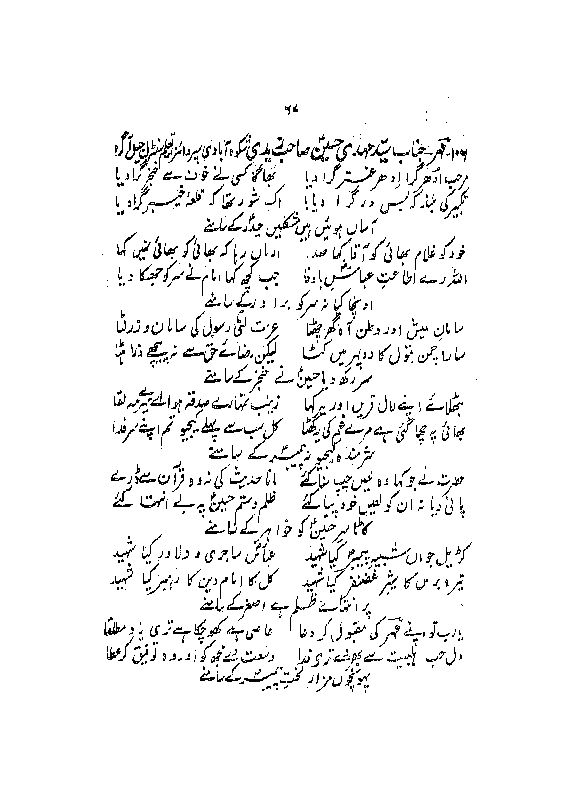 ۶۷
۱۰۶۔ مہر۔ جناب سید مہدی حسین صاحب زیدی شکوہ آبادی
مرحب ادھر گرا ادھر عنتر گرا دیا بھاگا کسی نے خون سے خنجر گرا دیا
تکبیر کی بنا کر بس در گرا دیا اک شور تھا کہ قلعہ خیبر گرا دیا
آساں ہوئیں ہیں مشکلیں حیدر کے سامنے
خود کو غلام بھائی کو آقا کہا صدا ارماں رہا کہ بھائی کو بھائی نہیں کہا
اللہ رے اطاعت عباس باوفا جب کچھ کہا امام نے سر کو جھکا دیا
اونچا کیا نہ سر کو برادر کے سامنے
سامان عیش اور وطن آہ گھر چھٹا عترت لٹی رسول کی سامان و زر لٹا
سارا چمن بتول کا دوپہر میں کٹا لیکن رضائے حق سے نہ پیچھے ذرا ہٹا
سر رکھ دیا حسین نے خنجر کے سامنے
بٹھلائے اپنے لال قریں اور یہ کہا زینب تمہارے صدقہ ہو اے میرے مہ لقا
بھائی پر چھا گئی ہے مرے غم کی گھٹا کل سب سے پہلے کیجیو تم اپنے سر فدا
شرمندہ کیجیو نہ پیمبر کے سامنے
حضرت نے جو کہا وہ لعیں جب سنا کئے مانا حدیث کی نہ وہ قرآن سے ڈرے
پانی دیا نہ ان کو لعیں خود پیا کئے ظلم و ستم حسین پہ بے انتہا کئے
کاٹا سر حسین کو خواہر کے سامنے
کڑیل جواں شبیہ پیمبر کیا شہید عباس سا جری و دلاور کیا شہید
تیرہ برس کا شیر غضنفر کیا شہید کل کا امام دین کا رہبر کیا شہید
پر انتہائے ظلم ہے اصغر کے سامنے
یارب تو اپنے مہر کی مقبول کر دعا عاصی ہے کھو چکا ہے تری یاد مطلقا
دل حب اہلبیت سے بھر دے تری فدا وسعت دے مجھ کو اور وہ توفیق کر عطا
پہونچوں مزار لخت پیمبر کے سامنے